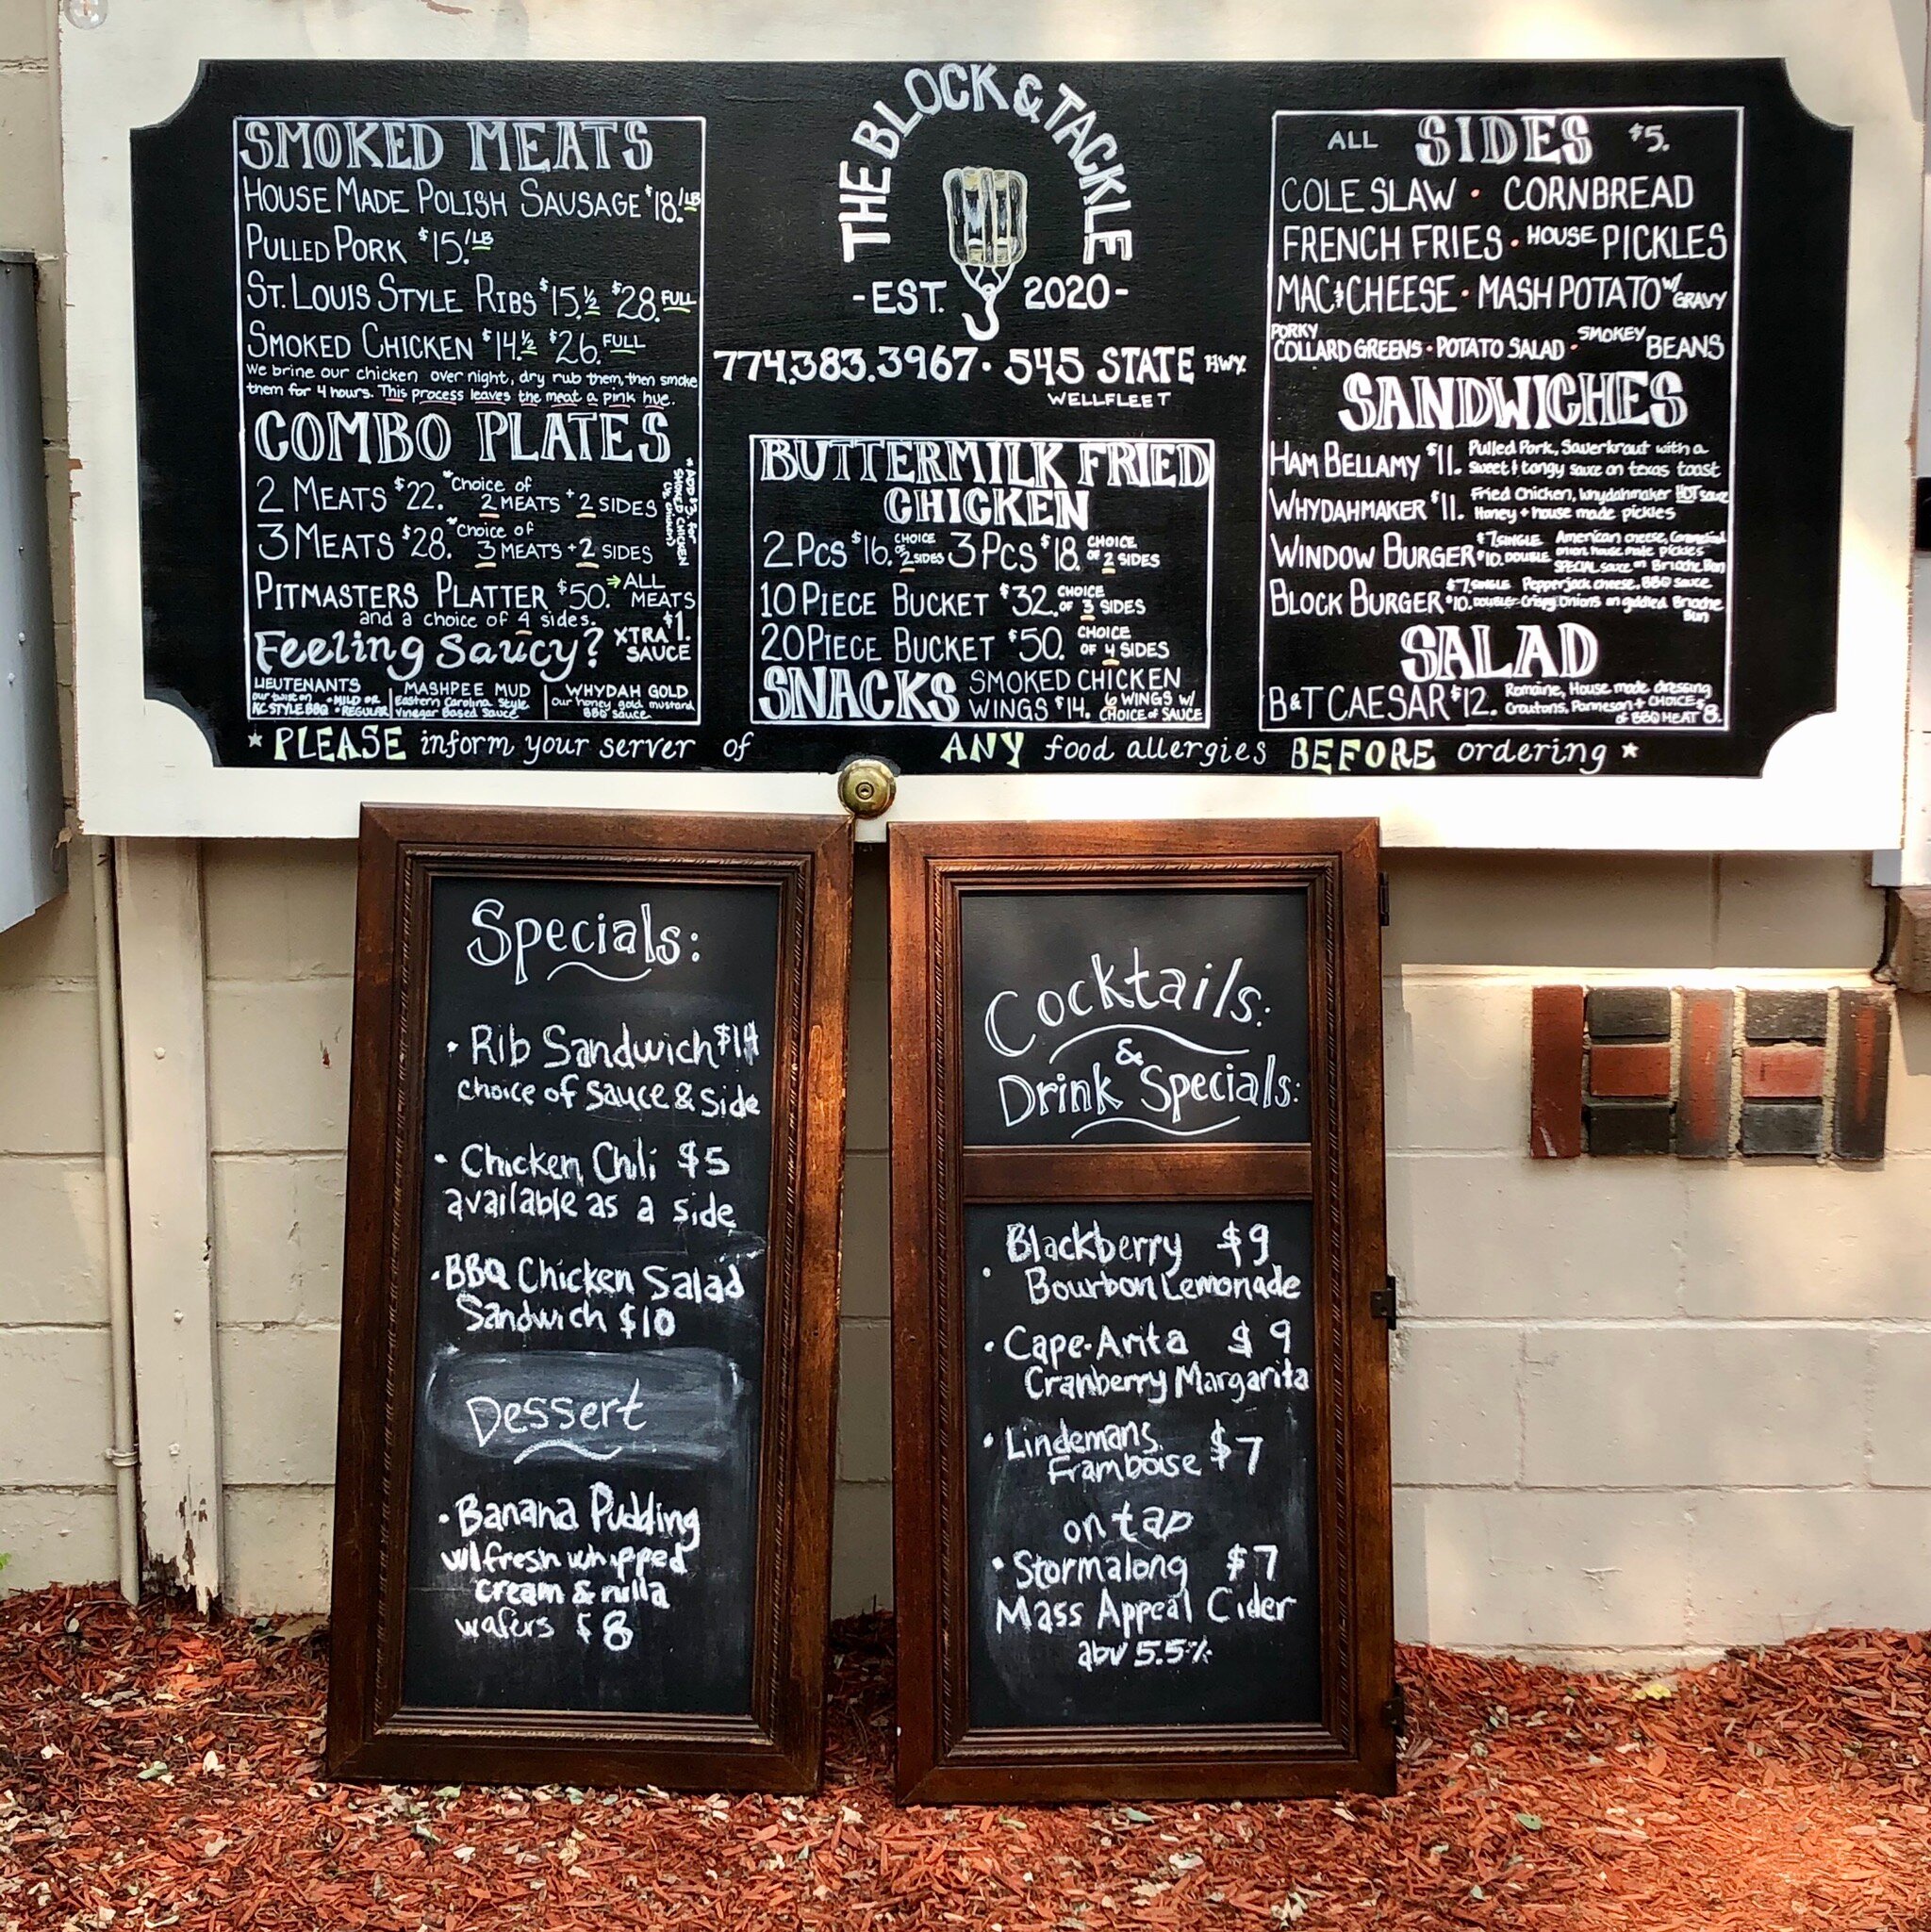 SMOKED MEATS
HOUSE MADE POLISH SAUSAGE $18./LB
PULLED PORK $15./LB
ST. LOUIS STYLE RIBS $15. ½ $28. FULL
SMOKED CHICKEN $14. ½ $26. FULL
We brine our chicken over night, dry rub them, then smoke
them for 4 hours. This process leaves the meat a pink hue.
COMBO PLATES
2 MEATS $22. *Choice of
2 MEATS + 2 SIDES
3 MEATS $28. *Choice of
3 MEATS + 2 SIDES
* ADD $3. for
SMOKED CHICKEN
PITMASTERS PLATTER $50. → ALL
MEATS
and a choice of 4 sides.
Feeling Saucy? XTRA $1.
SAUCE
LIEUTENANTS
our twist on
KC STYLE BBQ
• MILD OR
• REGULAR
MASHPEE MUD
Eastern Carolina Style
Vinegar Based Sauce
WHYDAH GOLD
our honey gold mustard
BBQ sauce
THE BLOCK & TACKLE
-EST. 2020-
774.383.3967 • 545 STATE HWY.
WELLFLEET
BUTTERMILK FRIED
CHICKEN
2 PCS $16. CHOICE OF 2 SIDES 3 PCS $18. CHOICE OF 2 SIDES
10 PIECE BUCKET $32. CHOICE OF 3 SIDES
20 PIECE BUCKET $50. CHOICE OF 4 SIDES
SNACKS SMOKED CHICKEN
WINGS $14. 6 WINGS W/
CHOICE of SAUCE
ALL SIDES $5.
COLE SLAW • CORNBREAD
FRENCH FRIES • HOUSE PICKLES
MAC & CHEESE • MASH POTATO W/ GRAVY
PORKY
COLLARD GREENS • POTATO SALAD • SMOKEY BEANS
SANDWICHES
HAM BELLAMY $11. Pulled Pork, Sauerkraut with a
sweet & tangy sauce on texas toast
WHYDAHMAKER $11. Fried Chicken, Whydahmaker HOT sauce
Honey + house made pickles
WINDOW BURGER $7. SINGLE $10. DOUBLE American cheese, Caramelized
onion, house made pickles
SPECIAL sauce on Brioche Bun
BLOCK BURGER $7. SINGLE $10. DOUBLE Pepperjack cheese, BBQ sauce
Crispy Onions on griddled Brioche
Bun
SALAD
B&T CAESAR $12. Romaine, House made dressing
Croutons, Parmesan + CHOICE
of BBQ MEAT $8.
* PLEASE inform your server of ANY food allergies BEFORE ordering *
Specials:
• Rib Sandwich $14
choice of sauce & side
• Chicken Chili $5
available as a side
• BBQ Chicken Salad
Sandwich $10
Dessert
• Banana Pudding
w/fresh whipped
cream & nilla
wafers $8
Cocktails:
&
Drink Specials:
• Blackberry $9
Bourbon Lemonade
• Cape-Arita $9
Cranberry Margarita
• Lindemans $7
Framboise
on tap
• Stormalong $7
Mass Appeal Cider
abv 5.5%